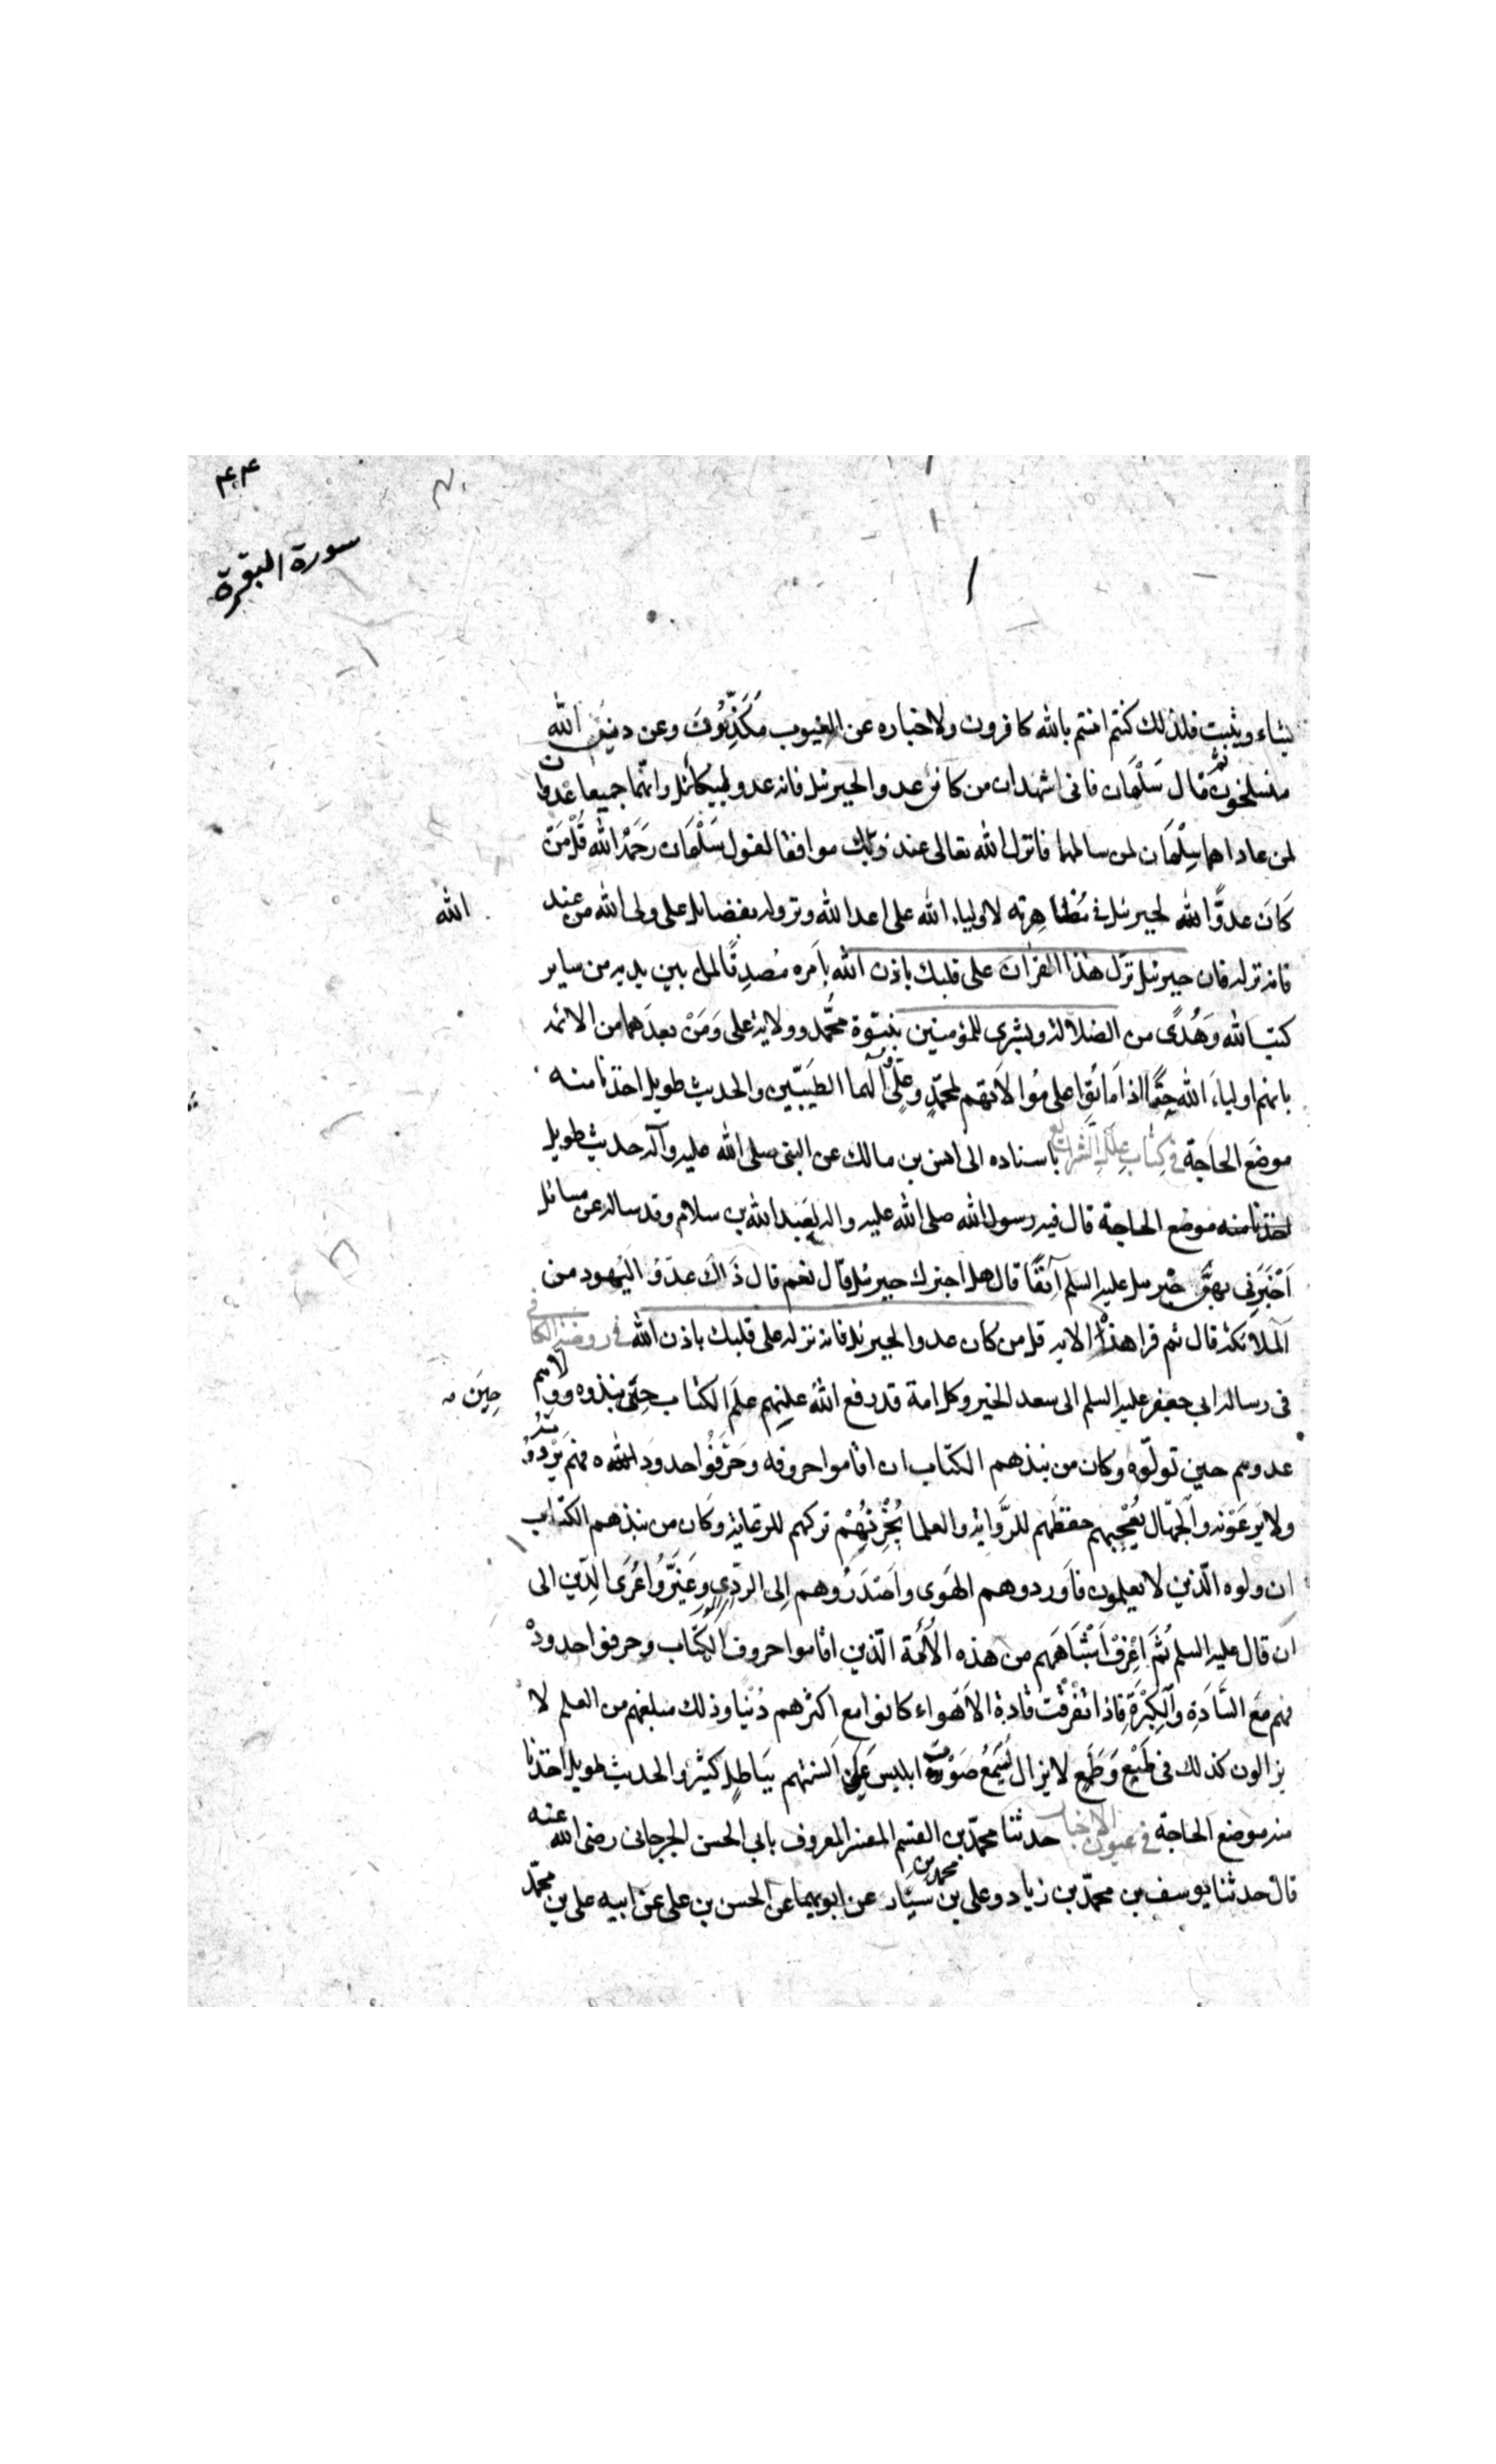 ۴۰۴
سورة البقرة
يشاء ويثبت فلذلك كنتم انتم بالله كافرون ولاخباره عن الغيوب مكذّبون وعن دين الله
منسلخون ثم قال سلمان فانى اشهد ان من كان عدوا لجبرئيل فانه عدو لميكائيل وانهما جميعا عدوان
لمن عاداهما سلمان لمن سالمهما فانزل الله تعالى عند ذلك موافقا لقول سلمان رحمه الله قل من
كان عدوًّا لله لجبرئيل فى مظاهرته لاولياء الله على اعدا الله ونزوله بفضائل على ولى الله من عند
الله
فانه نزله فان جبرئيل نزل هذا القران على قلبك باذن الله بامره مصدقًا لما بين يديه من ساير
كتب الله وهُدًى من الضلالة وبشرى للمؤمنين بنبوّة محمّد وولاية على ومن بعدهما من الائمه
بانهم اولياء الله حقًّا اذا ماتوا على موالاتهم لمحمّدٍ وعلىٍّ وآلهما الطيّبين والحديث طويل اخذنا منه
موضع الحاجة فى كتاب علل الشرائع باسناده الى انس بن مالك عن النبى صلى الله عليه وآله حديث طويل
اخذنا منه موضع الحاجة قال فيه رسول الله صلى الله عليه واله لعبد الله بن سلام وقد ساله عن مسائل
اخبرنى بهنّ جبرئيل عليه السلم آنفًا قال هل اخبرك جبرئيل قال نعم قال ذاك عدوّ اليهود من
الملائكة قال ثم قرا هذه الاية قل من كان عدوا لجبرئيل فانه نزله على قلبك باذن الله فى روضة الكافى
فى رسالة ابى جعفر عليه السلم الى سعد الخير وكل امة قد رفع الله عليهم علم الكتاب حتى نبذوه وولاهم
حين
عدوهم حين تولّوه وكان من نبذهم الكتاب ان اقاموا حروفه وحرّفوا حدوده فهم يروونه
ولا يرعونه والجهّال يعجبهم حفظهم للرّواية والعلما يحزنهم تركهم للرعاية وكان من نبذهم الكتاب
ان ولوه الّذين لا يعلمون فاوردوهم الهوى واصدروهم الى الردى وغيّروا عرى الدّين الى
ان قال عليه السلم ثم اعرف اشباههم من هذه الأمّة الّذين اقاموا حروف الكتاب وحرفوا حدوده
فهم مع السّادة والكبرة فاذا تفرقت قادة الاهواء كانوا مع اكثرهم دنيا وذلك مبلغهم من العلم لا
يزالون كذلك فى طبع وطمع لا يزال يسمع صوت ابليس على السنتهم بباطل كثير والحديث طويل اخذنا
منه موضع الحاجة فى عيون الاخبار حدثنا محمّد بن القسم المفسر المعروف بابى الحسن الجرجانى رضى الله عنه
قال حدثنا يوسف بن محمّد بن زياد وعلى بن محمد بن سيّار عن ابويهما عن الحسن بن على عن ابيه على بن محمّد